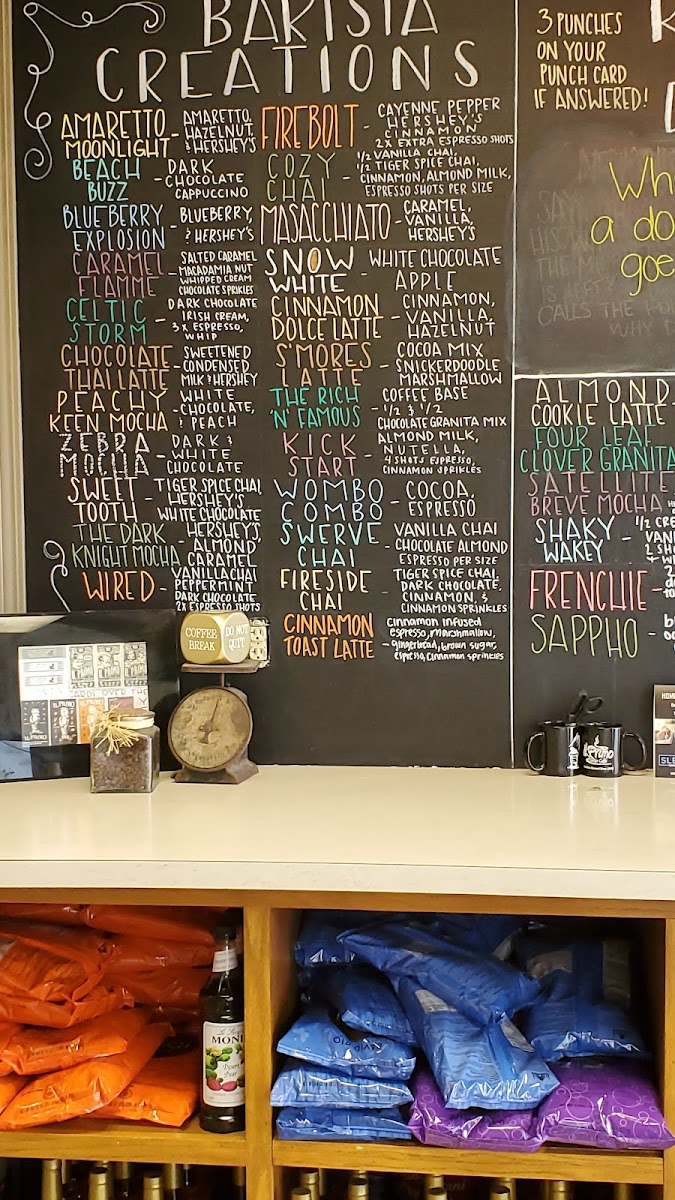 BARISTA
CREATIONS
AMARETTO
MOONLIGHT - AMARETTO,
HAZELNUT,
& HERSHEY'S
BEACH
BUZZ - DARK
CHOCOLATE
CAPPUCCINO
BLUEBERRY
EXPLOSION - BLUEBERRY,
& HERSHEY'S
CARAMEL
FLAMME - SALTED CARAMEL
MACADAMIA NUT
WHIPPED CREAM
CHOCOLATE SPRINKLES
CELTIC
STORM - DARK CHOCOLATE
IRISH CREAM,
3X ESPRESSO,
WHIP
CHOCOLATE
THAI LATTE - SWEETENED
CONDENSED
MILK & HERSHEY
PEACHY
KEEN MOCHA - WHITE
CHOCOLATE,
& PEACH
ZEBRA
MOCHA - DARK &
WHITE
CHOCOLATE
SWEET
TOOTH - TIGER SPICE CHAI,
HERSHEY'S
WHITE CHOCOLATE
THE DARK
KNIGHT MOCHA - HERSHEY'S,
ALMOND
CARAMEL
WIRED - VANILLA CHAI
PEPPERMINT
DARK CHOCOLATE
2X ESPRESSO SHOTS
FIREBOLT - CAYENNE PEPPER
HERSHEY'S
CINNAMON
2X EXTRA ESPRESSO SHOTS
COZY
CHAI - 1/2 VANILLA CHAI,
1/2 TIGER SPICE CHAI,
CINNAMON, ALMOND MILK,
ESPRESSO SHOTS PER SIZE
MASACCHIATO - CARAMEL,
VANILLA,
HERSHEY'S
SNOW
WHITE - WHITE CHOCOLATE
APPLE
CINNAMON
DOLCE LATTE - CINNAMON,
VANILLA,
HAZELNUT
S'MORES
LATTE - COCOA MIX
SNICKERDOODLE
MARSHMALLOW
THE RICH
'N' FAMOUS - COFFEE BASE
1/2 & 1/2
CHOCOLATE GRANITA MIX
KICK
START - ALMOND MILK,
NUTELLA,
4 SHOTS ESPRESSO,
CINNAMON SPRINKLES
WOMBO
COMBO - COCOA,
ESPRESSO
SWERVE
CHAI - VANILLA CHAI
CHOCOLATE ALMOND
ESPRESSO PER SIZE
FIRESIDE
CHAI - TIGER SPICE CHAI
DARK CHOCOLATE,
CINNAMON, &
CINNAMON SPRINKLES
CINNAMON
TOAST LATTE - cinnamon infused
espresso, marshmallow,
gingerbread, brown sugar,
espresso, cinnamon sprinkles
3 PUNCHES
ON YOUR
PUNCH CARD
IF ANSWERED!
a do
goe
CALLS THE
WHY
ALMOND
COOKIE LATTE
FOUR LEAF
CLOVER GRANITA
SATELLITE
BREVE MOCHA
SHAKY
WAKEY - 1/2 CRE
VAN
2 SH
FRENCHIE -
SAPPHO -
COFFEE
BREAK
DO NOT
QUIT
il Primo
MONI